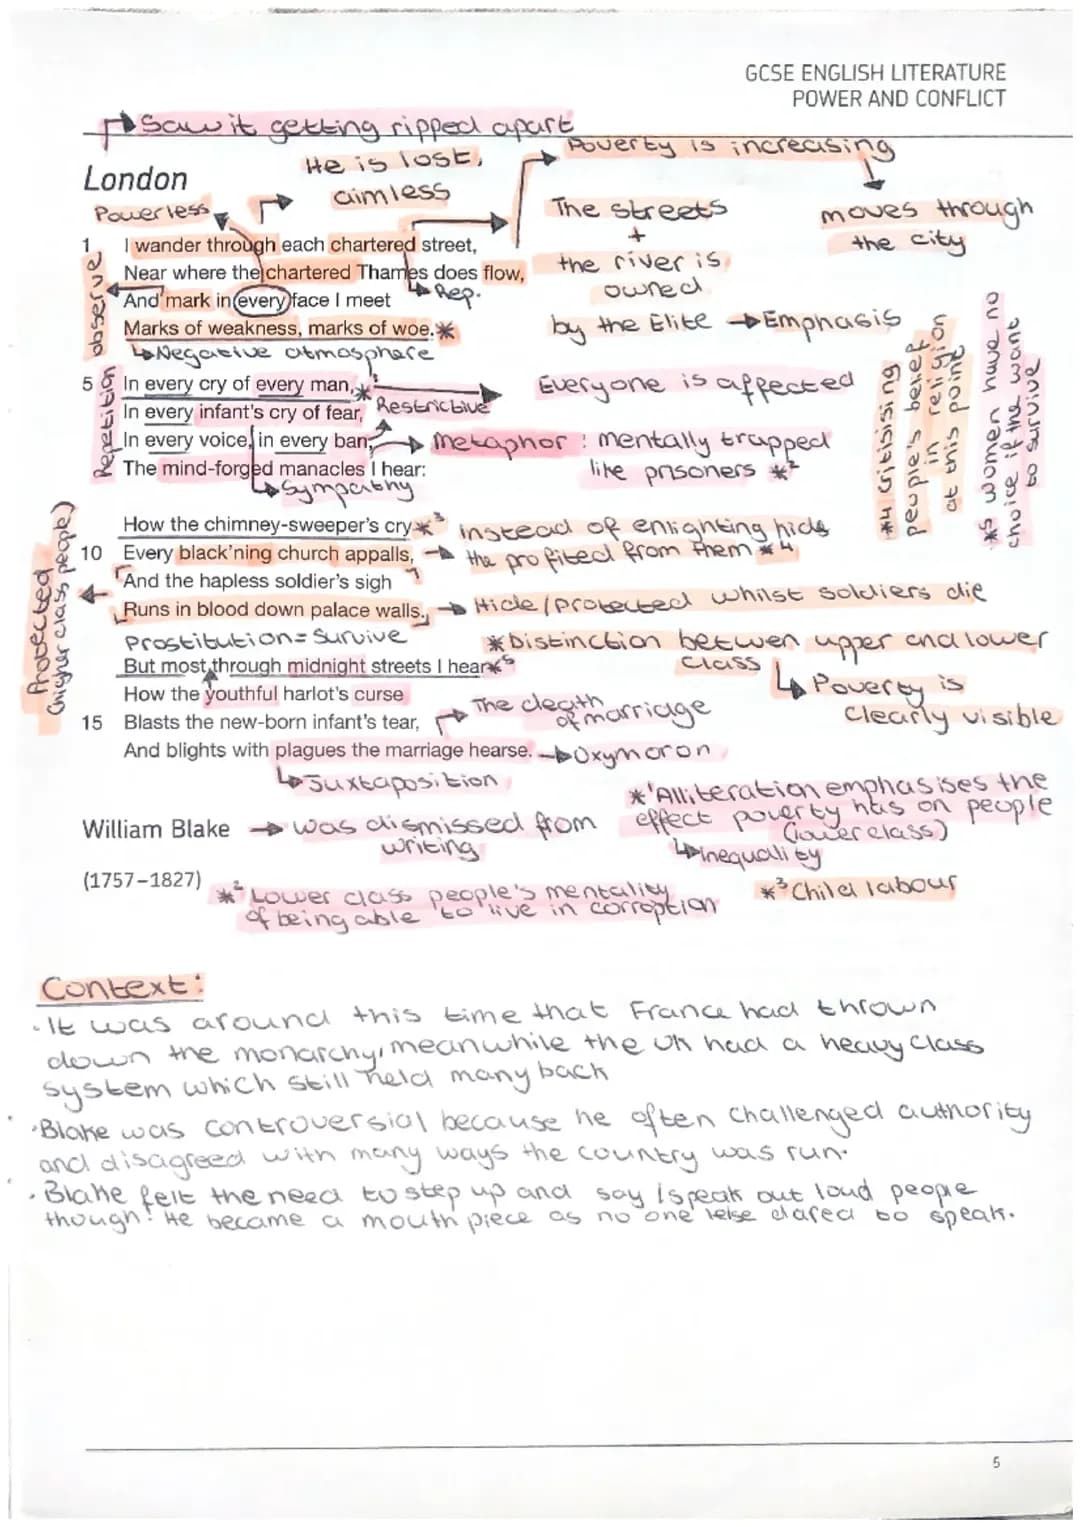 GCSE ENGLISH LITERATURE
POWER AND CONFLICT
Saw it getting ripped apart
He is lost,
aimless
Poverty is increasing
moves through
the city
London
Powerless
The streets
+
the river is
owned
by the Elite → Emphasis
1 I wander through each chartered street,
Near where the chartered Thames does flow,
Rep.
And mark in every face I meet
Marks of weakness, marks of woe.*
observe
Negative atmosphere
5 In every cry of every man,*
Everyone is affected
In every infant's cry of fear,
Restrictive
In every voice, in every ban,
Repetition
metaphor : mentally trapped
like prisoners *2
The mind-forged manacles I hear:
Sympathy
*4 Critisising
people's belief
in religion
at this point
*5 women have no
choice if the want
to survive
How the chimney-sweeper's cry *3
instead of enlighting hids
10 Every black'ning church appalls,
the profited from them *4
And the hapless soldier's sigh
Runs in blood down palace walls.
Hide/protected whilst soldiers die
Protected
(higher class people)
Prostitution = Survive
*Distinction betwen upper and lower
class
But most through midnight streets I hear *5
Poverty is
clearly visible
How the youthful harlot's curse
The death
of marriage
15 Blasts the new-born infant's tear,
And blights with plagues the marriage hearse.
Oxymoron
Juxtaposition
*1 Alliteration emphasises the
effect poverty has on people
(lower class)
Inequality
William Blake → was dismissed from
writing
(1757–1827)
*2 Lower class people's mentality
of being able to live in corroption
*3 Child labour
Context:
· It was around this time that France had thrown
down the monarchy, meanwhile the UK had a heavy class
system which still held many back
· Blake was controversial because he often challenged authority
and disagreed with many ways the country was run.
· Blake felt the need to step up and say / speak out loud people
though. He became a mouth piece as no one else dared to speak.
5